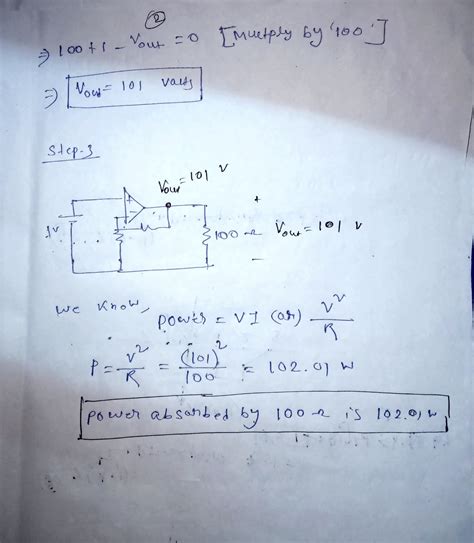 ②
⇒ 100+1 - Vout = 0 [Multiply by '100']
⇒ Vout = 101 volts
Step-3
Vout = 101 V
+
+
-
1v
100 Ω Vout = 101 v
-
We know,
power = VI (or) V²/R
P = V²/R = (101)²/100 = 102.01 W
power absorbed by 100 Ω is 102.01 W